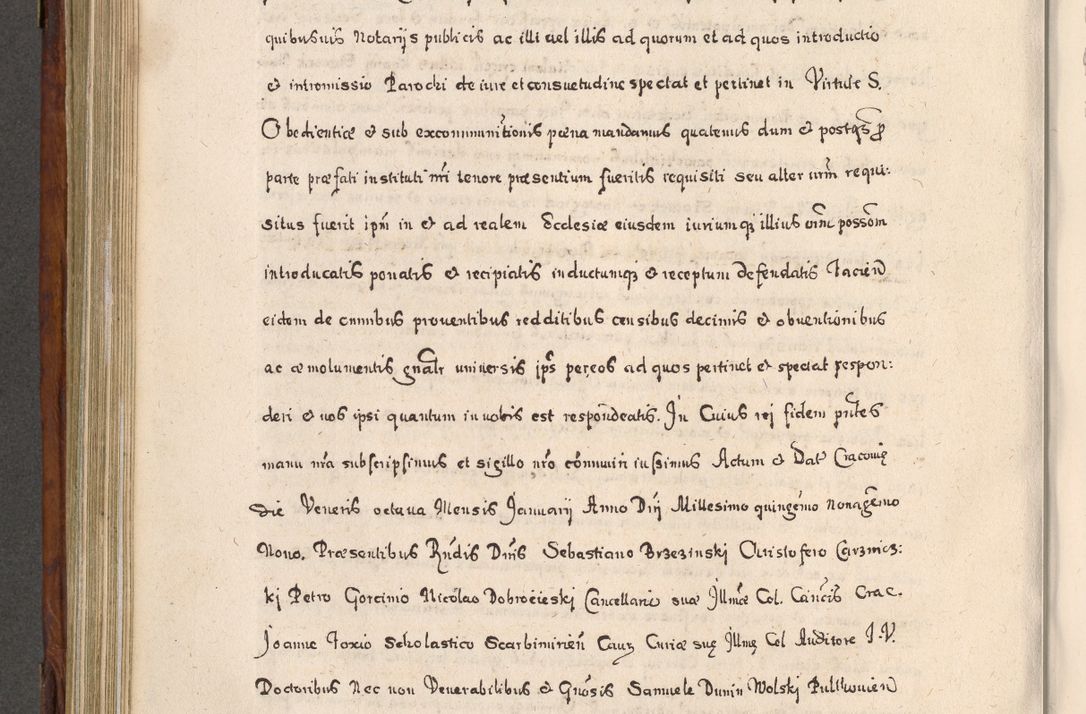 quibusuis Notarijs publicis ac illi vel illis ad quorum et ad quos introductio
et intromissio Parochi de iure et consuetudine spectat et pertinet in Virtute S.
Obedientiæ et sub excommunitionis pœna mandamus quatenus dum et postqs
parte præfati instituti nri tenore præsentium fueritis requisiti seu alter vrm requi:
situs fuerit ipm in et ad realem Ecclesiæ eiusdem iuriumq illius possom
introducatis ponatis et recipiatis inductumq et receptum defendatis facien
eidem de omnibus prouentibus redditibus censibus decimis et obuentionibus
ac æmolumentis gnalr uniuersis ips per eos ad quos pertinet et spectat respon:
deri et uos ipsi quantum in uobis est respondeatis. In Cuius rej fidem pntes
manu nra subscripsimus et sigillo nro comunin iussimus Actum et Dat Cracouię
die Veneris octaua Mensis Januarij Anno Dnj Millesimo quingemo nonagemo
Nono. Præsentibus Rndis Dnis Sebastiano Brzezinski Christofero Carznics:
kj Petro Gorcinio Nicolao Dobrocieskj Cancellario suæ Illmæ Col. Cancis Crac.
Joanne Foxio Scholastico Scarbimirien Caus Curiæ suę Illmę Col Auditore J. V.
Doctoribus Nec non Venerabilibus et Gnosis Samuele Dunin Wolskj Pultouien